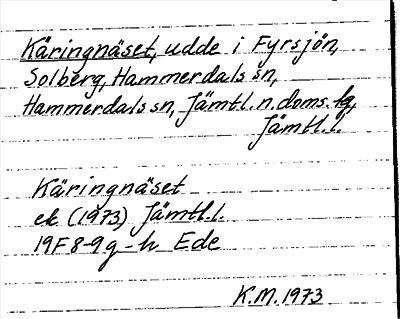 Käringnäset, udde i Fyrsjön,
Solberg, Hammerdals sn,
Hammerdals sn, Jämtl. n. doms. tg,
Jämtl. l.
Käringnäset
ek (1973) Jämtl. l.
19F 8-9 g-h Ede
K.M. 1973